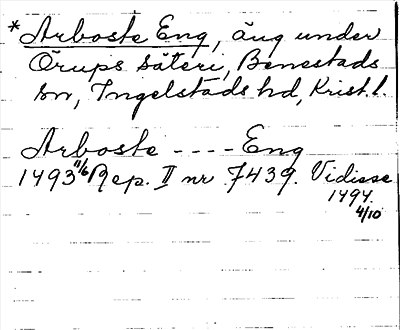 * Arboste Eng, äng under
Örups säteri, Benestads
sn, Ingelstads hd, Krist. l.
Arboste ---- Eng
1493 11/6 Rep. II nr 7439. Vidisse
1494.
4/10